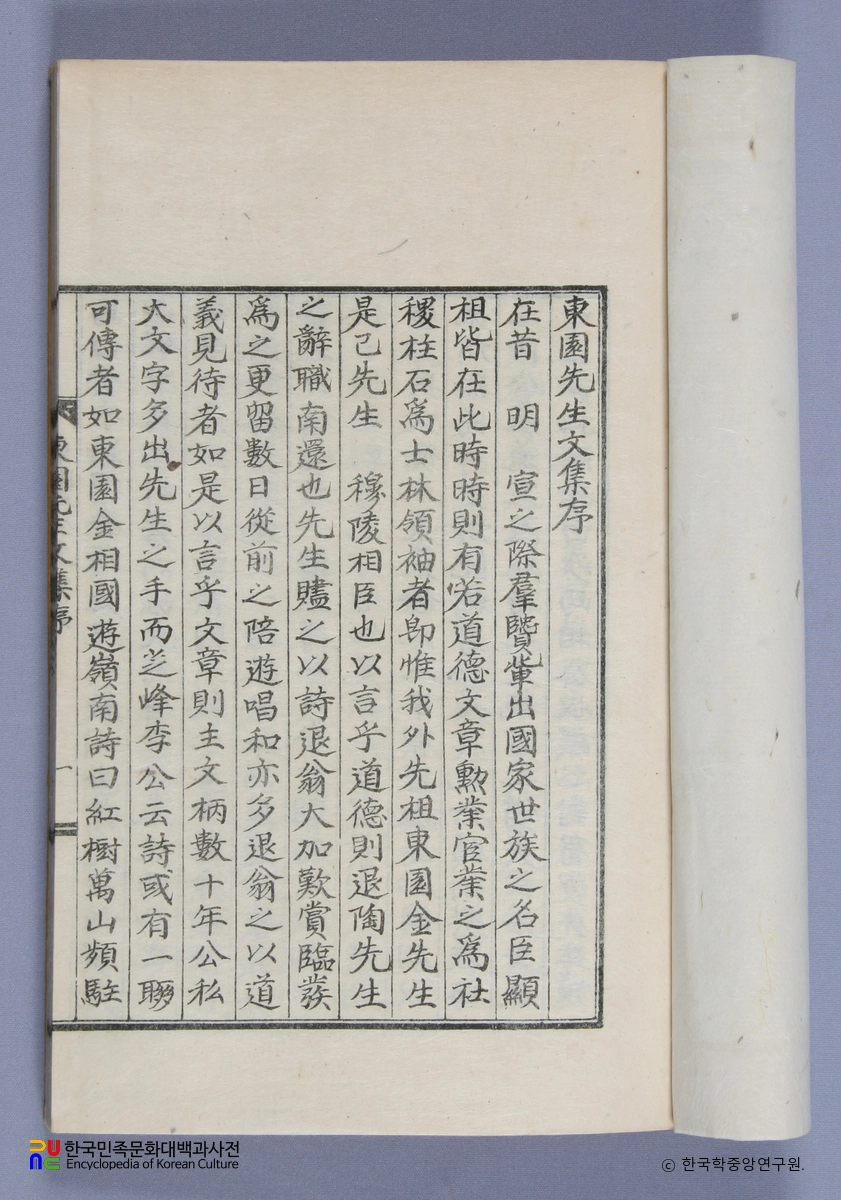 東園先生文集序
在昔 明 宣之際羣賢輩出國家世族之名臣顯
祖皆在此時時則有若道德文章勳業官業之爲社
稷柱石爲士林領袖者卽惟我外先祖東園金先生
是已先生 穆陵相臣也以言乎道德則退陶先生
之辭職南還也先生贐之以詩退翁大加歎賞臨發
爲之更留數日從前之陪遊唱和亦多退翁之以道
義見待者如是以言乎文章則主文柄數十年公私
大文字多出先生之手而芝峰李公云詩或有一聯
可傳者如東園金相國遊嶺南詩曰紅樹萬山頻駐
東園先生文集序
一
한국민족문화대백과사전
Encyclopedia of Korean Culture
ⓒ 한국학중앙연구원.